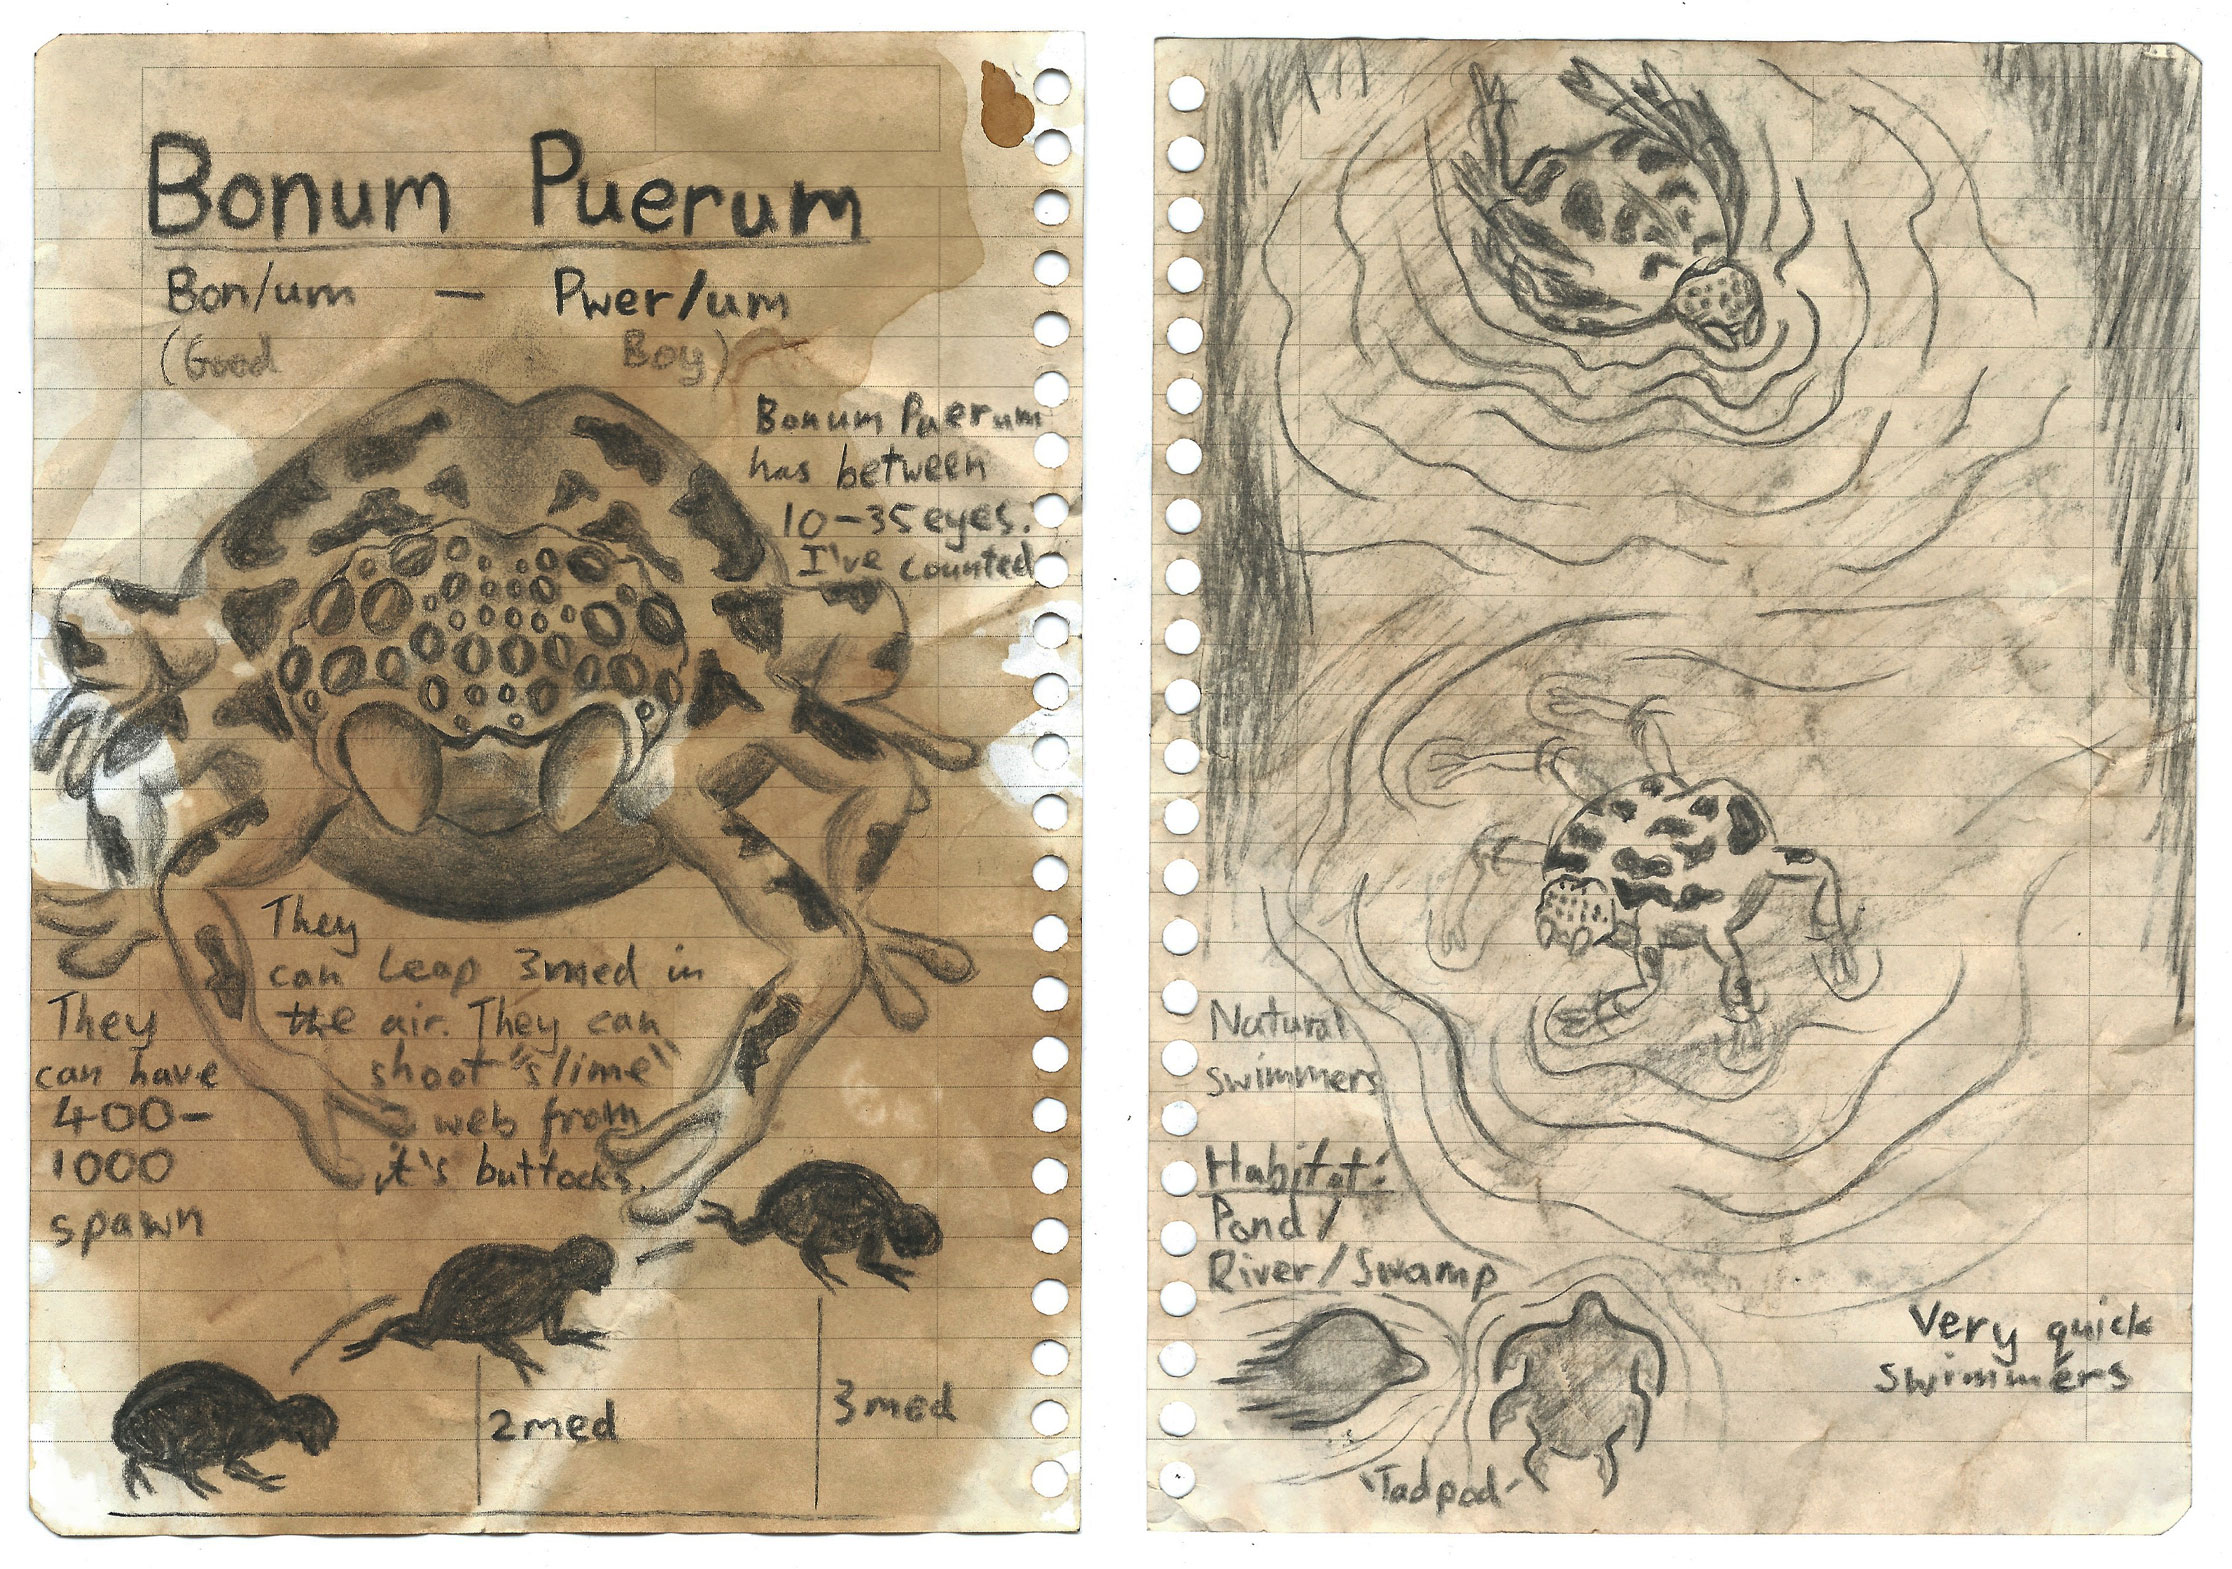 Bonum Puerum
Bon/um — Pwer/um
(Good Boy)
Bonum Puerum
has between
10-35 eyes.
I've counted
They
can Leap 3med in
the air. They can
shoot "slime"
web from
it's buttocks.
They
can have
400-
1000
spawn
2med
3med
Natural
swimmers
Habitat:
Pond/
River/Swamp
Very quick
swimmers
'Tadpod'